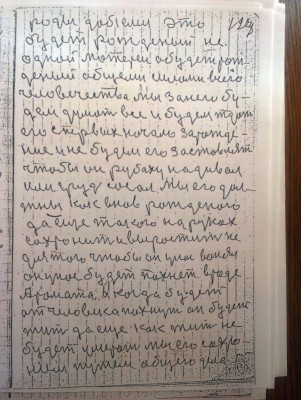 роди добрем Это 119
будет рожденый не
одной матерей а будет рож
деный общеми силами всего
человечества мы занего бу-
дем думать все и будем ждат
его с первых начало зарожде-
ние и не будем его заставлят
чтобы он рубаху надивал
или груд сосал Мы его дол-
жны как внов рожденого
да еще такого на руках
сохранит и выростит же
для того чтобы он у нас
он у нас будет пахнет вроде
Аромата, А когда будет
от человека пахнут он будет
жит да еще как жит не
будет умерат мы его сохро-
ним путем общего дела